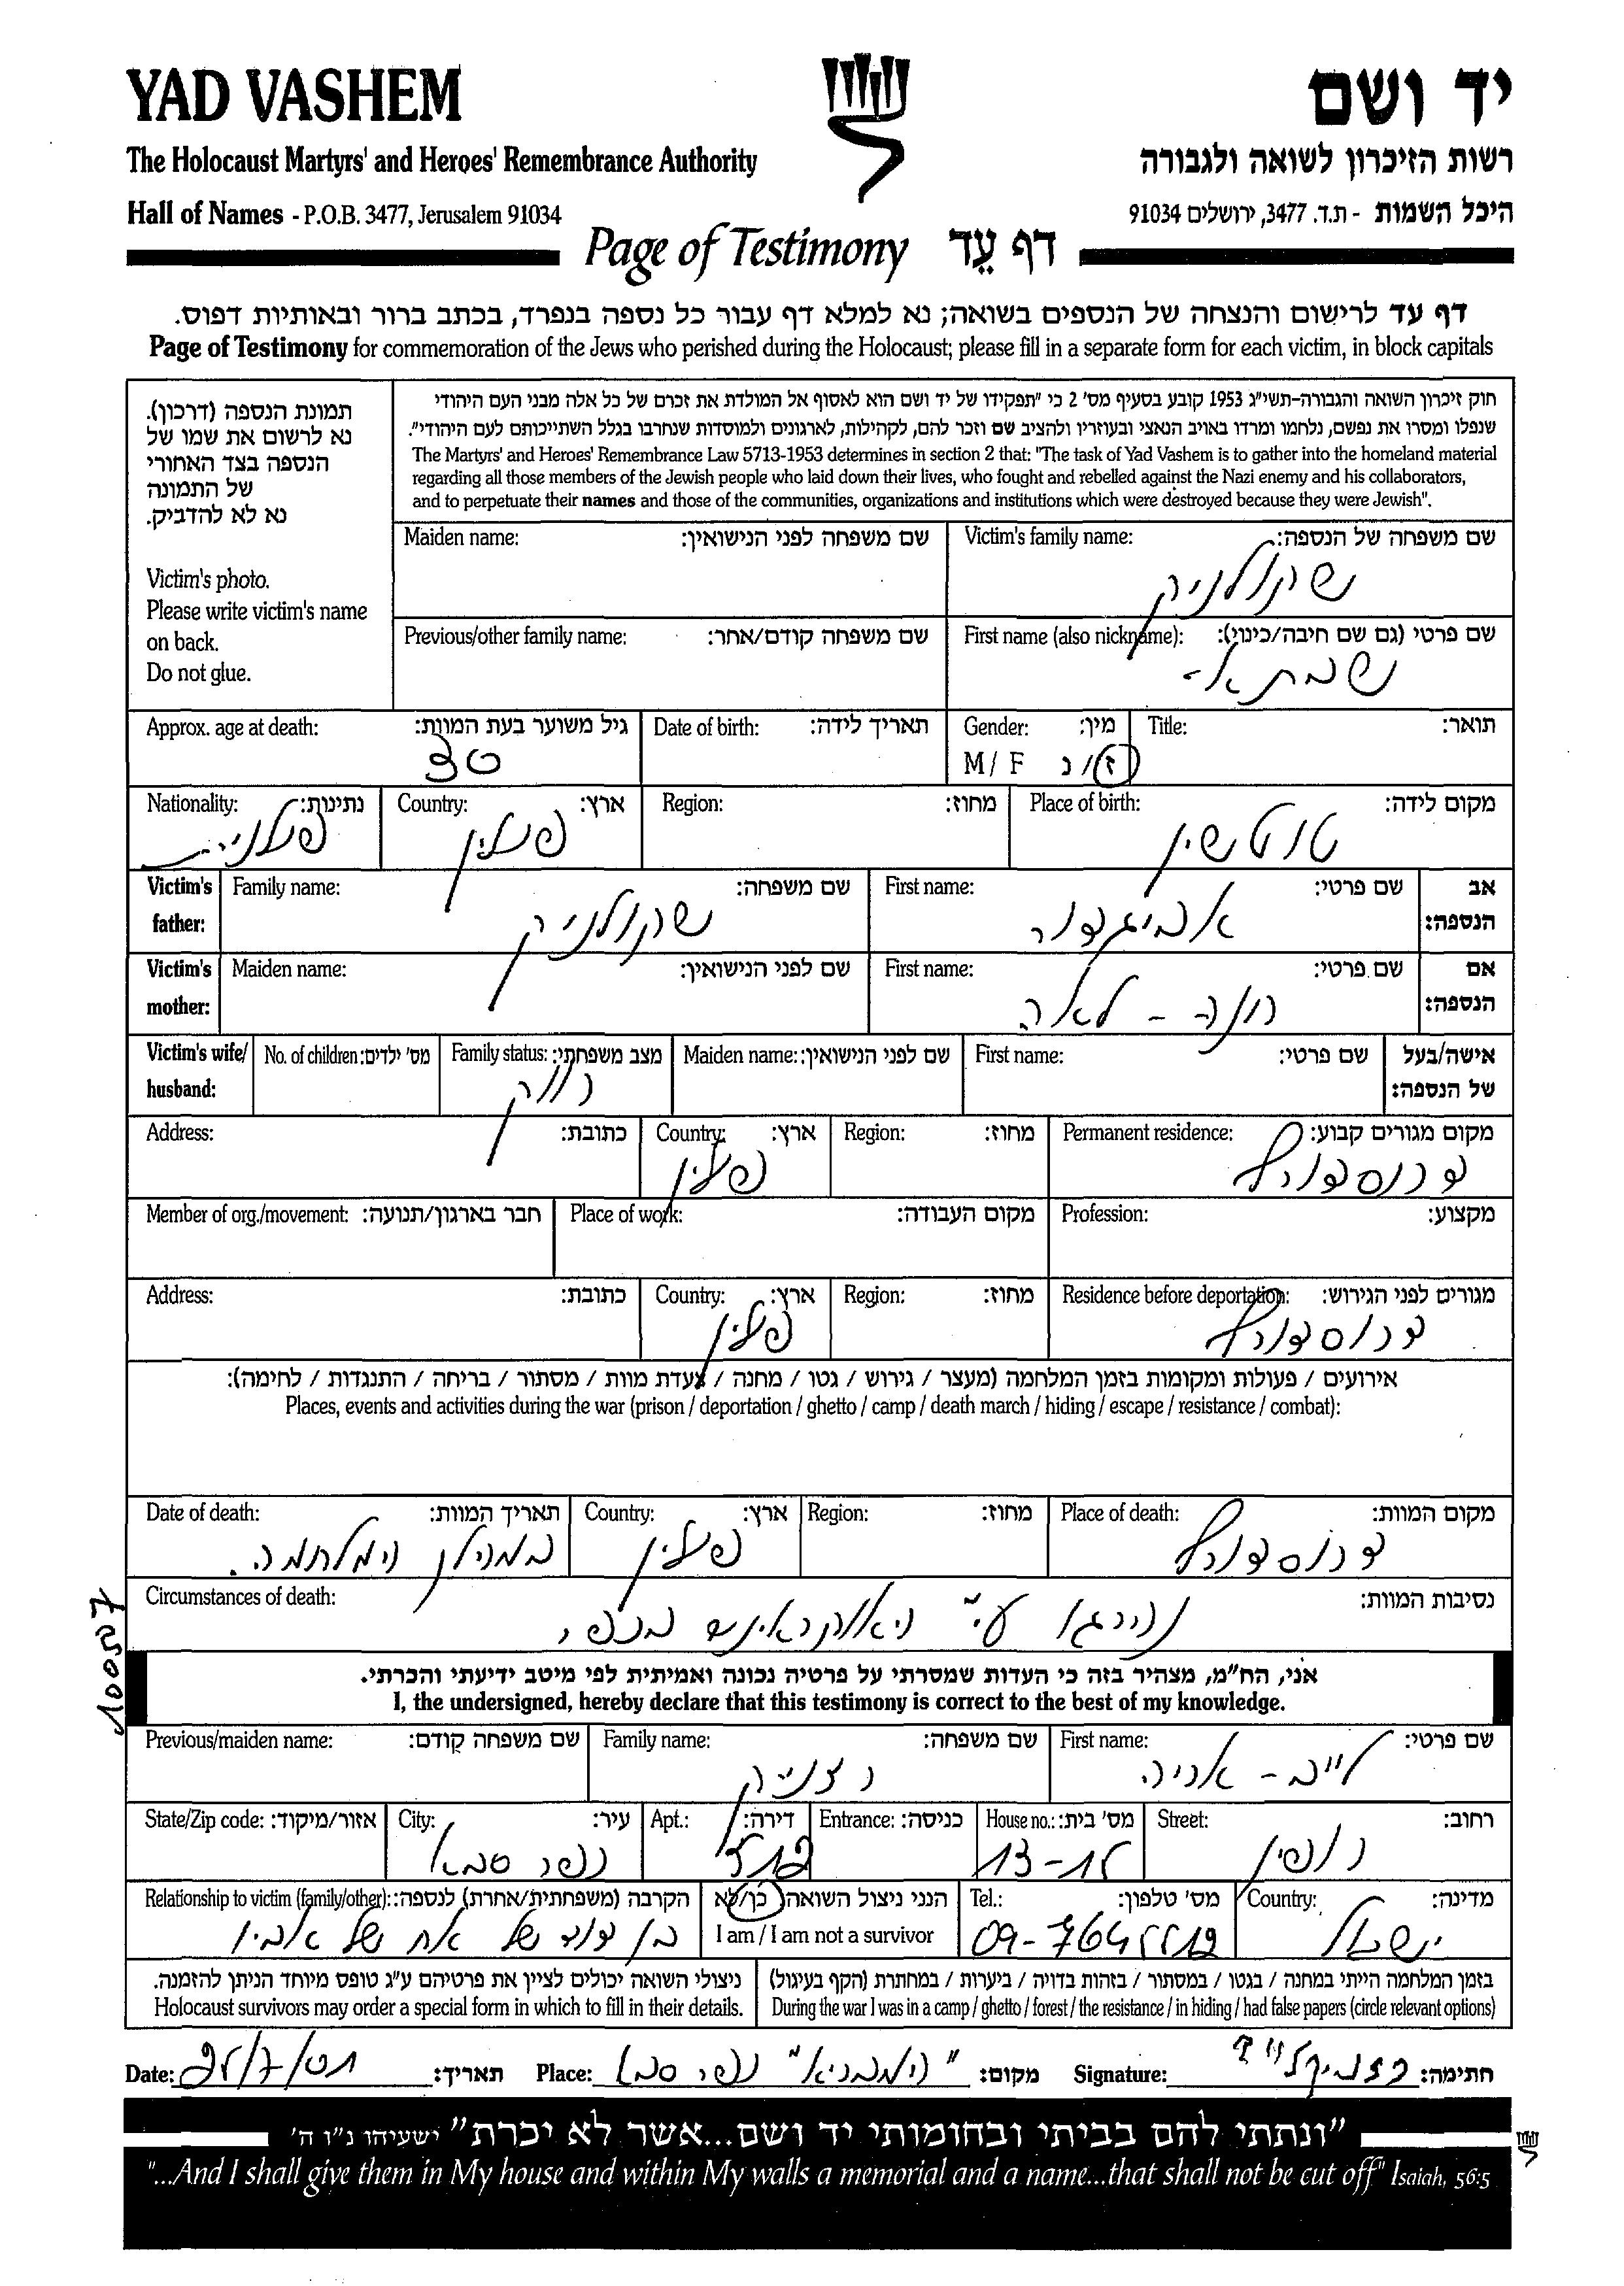 YAD VASHEM
יד ושם
The Holocaust Martyrs' and Heroes' Remembrance Authority
רשות הזיכרון לשואה ולגבורה
Hall of Names - P.O.B. 3477, Jerusalem 91034
היכל השמות - ת.ד. 3477, ירושלים 91034
Page of Testimony דף עֵד
דף עד לרישום והנצחה של הנספים בשואה; נא למלא דף עבור כל נספה בנפרד, בכתב ברור ובאותיות דפוס.
Page of Testimony for commemoration of the Jews who perished during the Holocaust; please fill in a separate form for each victim, in block capitals
תמונת הנספה (דרכון).
נא לרשום את שמו של
הנספה בצד האחורי
של התמונה
נא לא להדביק.
Victim's photo.
Please write victim's name
on back.
Do not glue.
חוק זיכרון השואה והגבורה-תשי"ג 1953 קובע בסעיף מס' 2 כי "תפקידו של יד ושם הוא לאסוף אל המולדת את זכרם של כל אלה מבני העם היהודי
שנפלו ומסרו את נפשם, נלחמו ומרדו באויב הנאצי ובעוזריו ולהציב שם וזכר להם, לקהילות, לארגונים ולמוסדות שנחרבו בגלל השתייכותם לעם היהודי".
The Martyrs' and Heroes' Remembrance Law 5713-1953 determines in section 2 that: "The task of Yad Vashem is to gather into the homeland material
regarding all those members of the Jewish people who laid down their lives, who fought and rebelled against the Nazi enemy and his collaborators,
and to perpetuate their names and those of the communities, organizations and institutions which were destroyed because they were Jewish".
Victim's family name: שם משפחה של הנספה:
שקולניק
Maiden name: שם משפחה לפני הנישואין:
First name (also nickname): שם פרטי (גם שם חיבה/כינוי):
שבתאי
Previous/other family name: שם משפחה קודם/אחר:
Title: תואר:
Gender: מין:
M / F ז / נ
Date of birth: תאריך לידה:
Approx. age at death: גיל משוער בעת המוות:
30
Place of birth: מקום לידה:
טוטשין
Region: מחוז:
Country: ארץ:
פולין
Nationality: נתינות:
פולנית
Victim's father: אב הנספה:
First name: שם פרטי:
אביגדור
Family name: שם משפחה:
שקולניק
Victim's mother: אם הנספה:
First name: שם פרטי:
חנה - לאה
Maiden name: שם לפני הנישואין:
Victim's wife/ husband: אישה/בעל של הנספה:
First name: שם פרטי:
Maiden name: שם לפני הנישואין:
Family status: מצב משפחתי:
רווק
No. of children: מס' ילדים:
Permanent residence: מקום מגורים קבוע:
דרוסדורף
Region: מחוז:
Country: ארץ:
פולין
Address: כתובת:
Profession: מקצוע:
Place of work: מקום העבודה:
Member of org./movement: חבר בארגון/תנועה:
Residence before deportation: מגורים לפני הגירוש:
דרוסדורף
Region: מחוז:
Country: ארץ:
פולין
Address: כתובת:
אירועים / פעולות ומקומות בזמן המלחמה (מעצר / גירוש / גטו / מחנה / צעדת מוות / מסתור / בריחה / התנגדות / לחימה):
Places, events and activities during the war (prison / deportation / ghetto / camp / death march / hiding / escape / resistance / combat):
Place of death: מקום המוות:
דרוסדורף
Region: מחוז:
Country: ארץ:
פולין
Date of death: תאריך המוות:
במהלך המלחמה.
Circumstances of death: נסיבות המוות:
נהרגו ע"י האוקראינים בכפר.
100557
אני, הח"מ, מצהיר בזה כי העדות שמסרתי על פרטיה נכונה ואמיתית לפי מיטב ידיעתי והכרתי.
I, the undersigned, hereby declare that this testimony is correct to the best of my knowledge.
First name: שם פרטי:
לייב - אריה
Family name: שם משפחה:
רזניק
Previous/maiden name: שם משפחה קודם:
Street: רחוב:
רופין
House no.: מס' בית:
13-15
Entrance: כניסה:
Apt.: דירה:
City: עיר:
כפר סבא
State/Zip code: אזור/מיקוד:
Country: מדינה:
ישראל
Tel.: מס' טלפון:
הנני ניצול השואה: כן/לא
I am / I am not a survivor
Relationship to victim (family/other): הקרבה (משפחתית/אחרת) לנספה:
בן דוד של אח של אביו
בזמן המלחמה הייתי במחנה / בגטו / במסתור / בזהות בדויה / ביערות / במחתרת (הקף בעיגול)
During the war I was in a camp / ghetto / forest / the resistance / in hiding / had false papers (circle relevant options)
ניצולי השואה יכולים לציין את פרטיהם ע"ג טופס מיוחד הניתן להזמנה.
Holocaust survivors may order a special form in which to fill in their details.
Date: תאריך: Place: כפר סבא מקום: Signature: חתימה:
"ונתתי להם בביתי ובחומותי יד ושם...אשר לא יכרת" ישעיהו נ"ו ה'
"...And I shall give them in My house and within My walls a memorial and a name...that shall not be cut off" Isaiah, 56:5